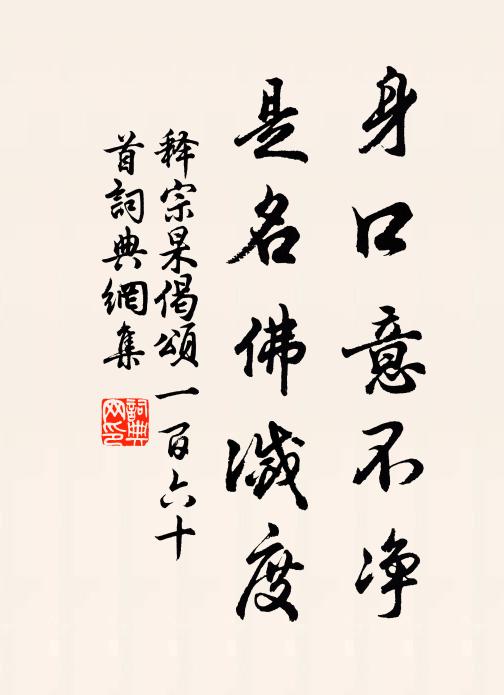 身口意不净
是名佛滅度
释宗杲偈頌一百六十
首詞典網集
詞典
网印